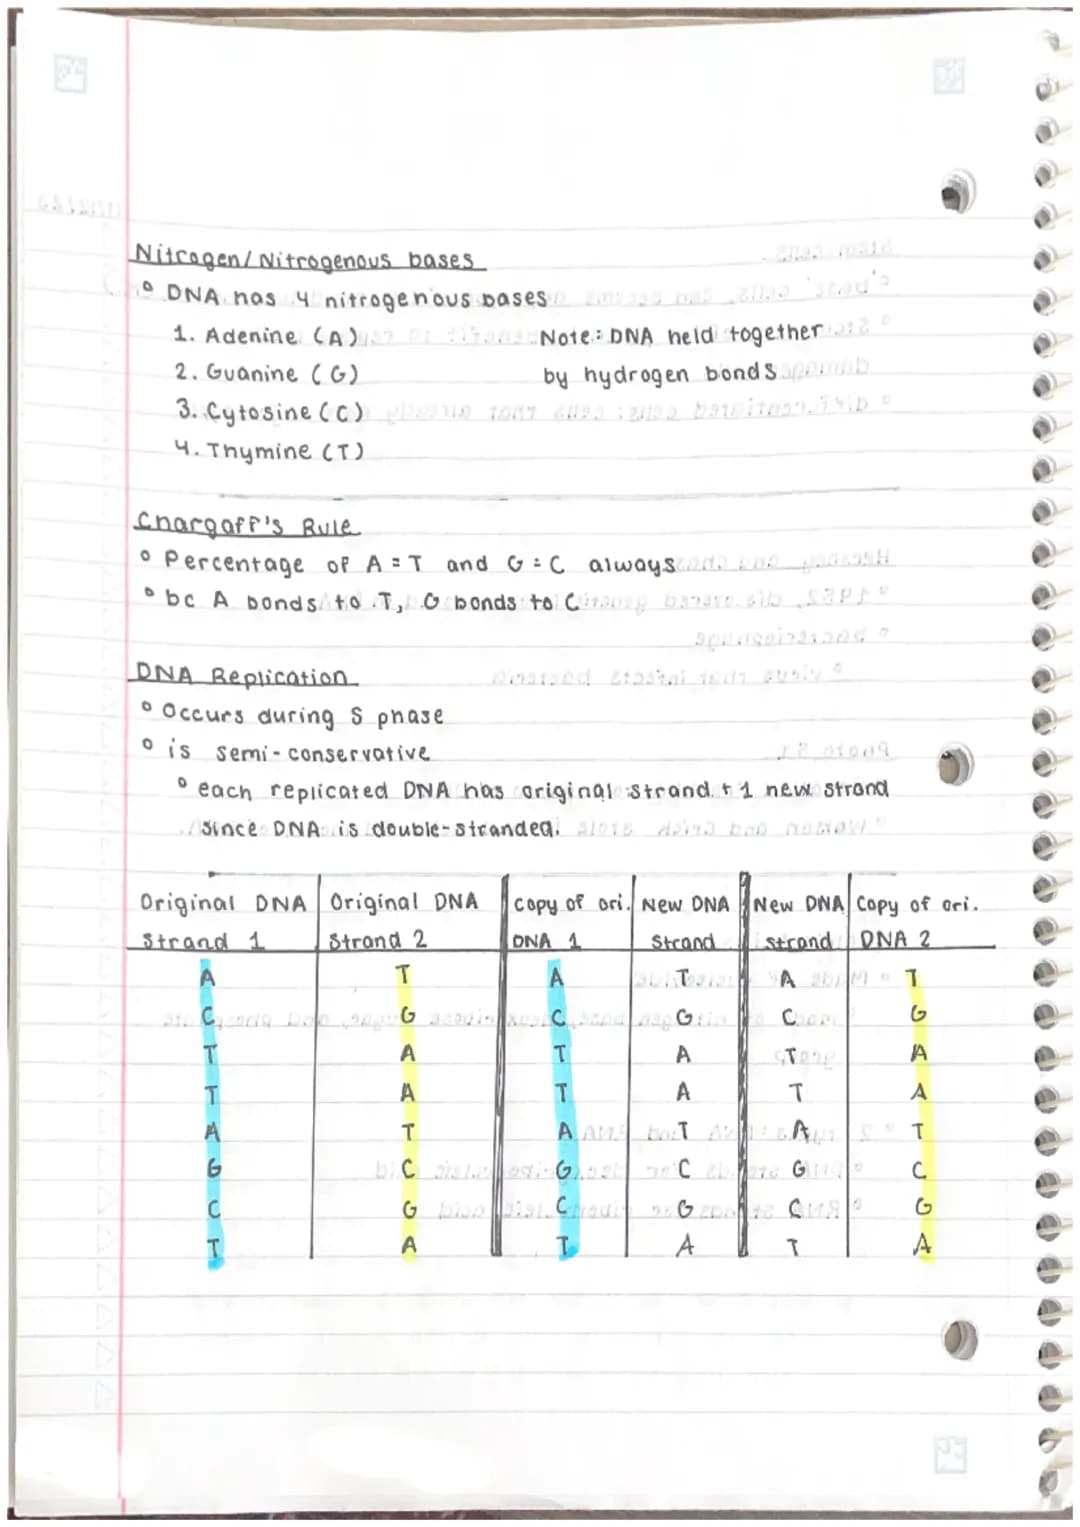 Nitrogen/Nitrogenous bases
° DNA has 4 nitrogenous bases
1. Adenine (A)
Note: DNA held together
2. Guanine (G)
by hydrogen bonds
3. Cytosine (C)
4. Thymine (T)
Chargaff's Rule
° Percentage of A = T and G = C always
° bc A bonds to T, G bonds to C
DNA Replication
° Occurs during S phase
° is semi-conservative
° each replicated DNA has original strand + 1 new strand
since DNA is double-stranded.
Original DNA Original DNA copy of ori. New DNA New DNA Copy of ori.
Strand 1 Strand 2 DNA 1 Strand strand DNA 2
A T A T A T
C G C G C G
T A T A T A
T A T A T A
A T A T A T
G C G C G C
C G C G C G
T A T A T A